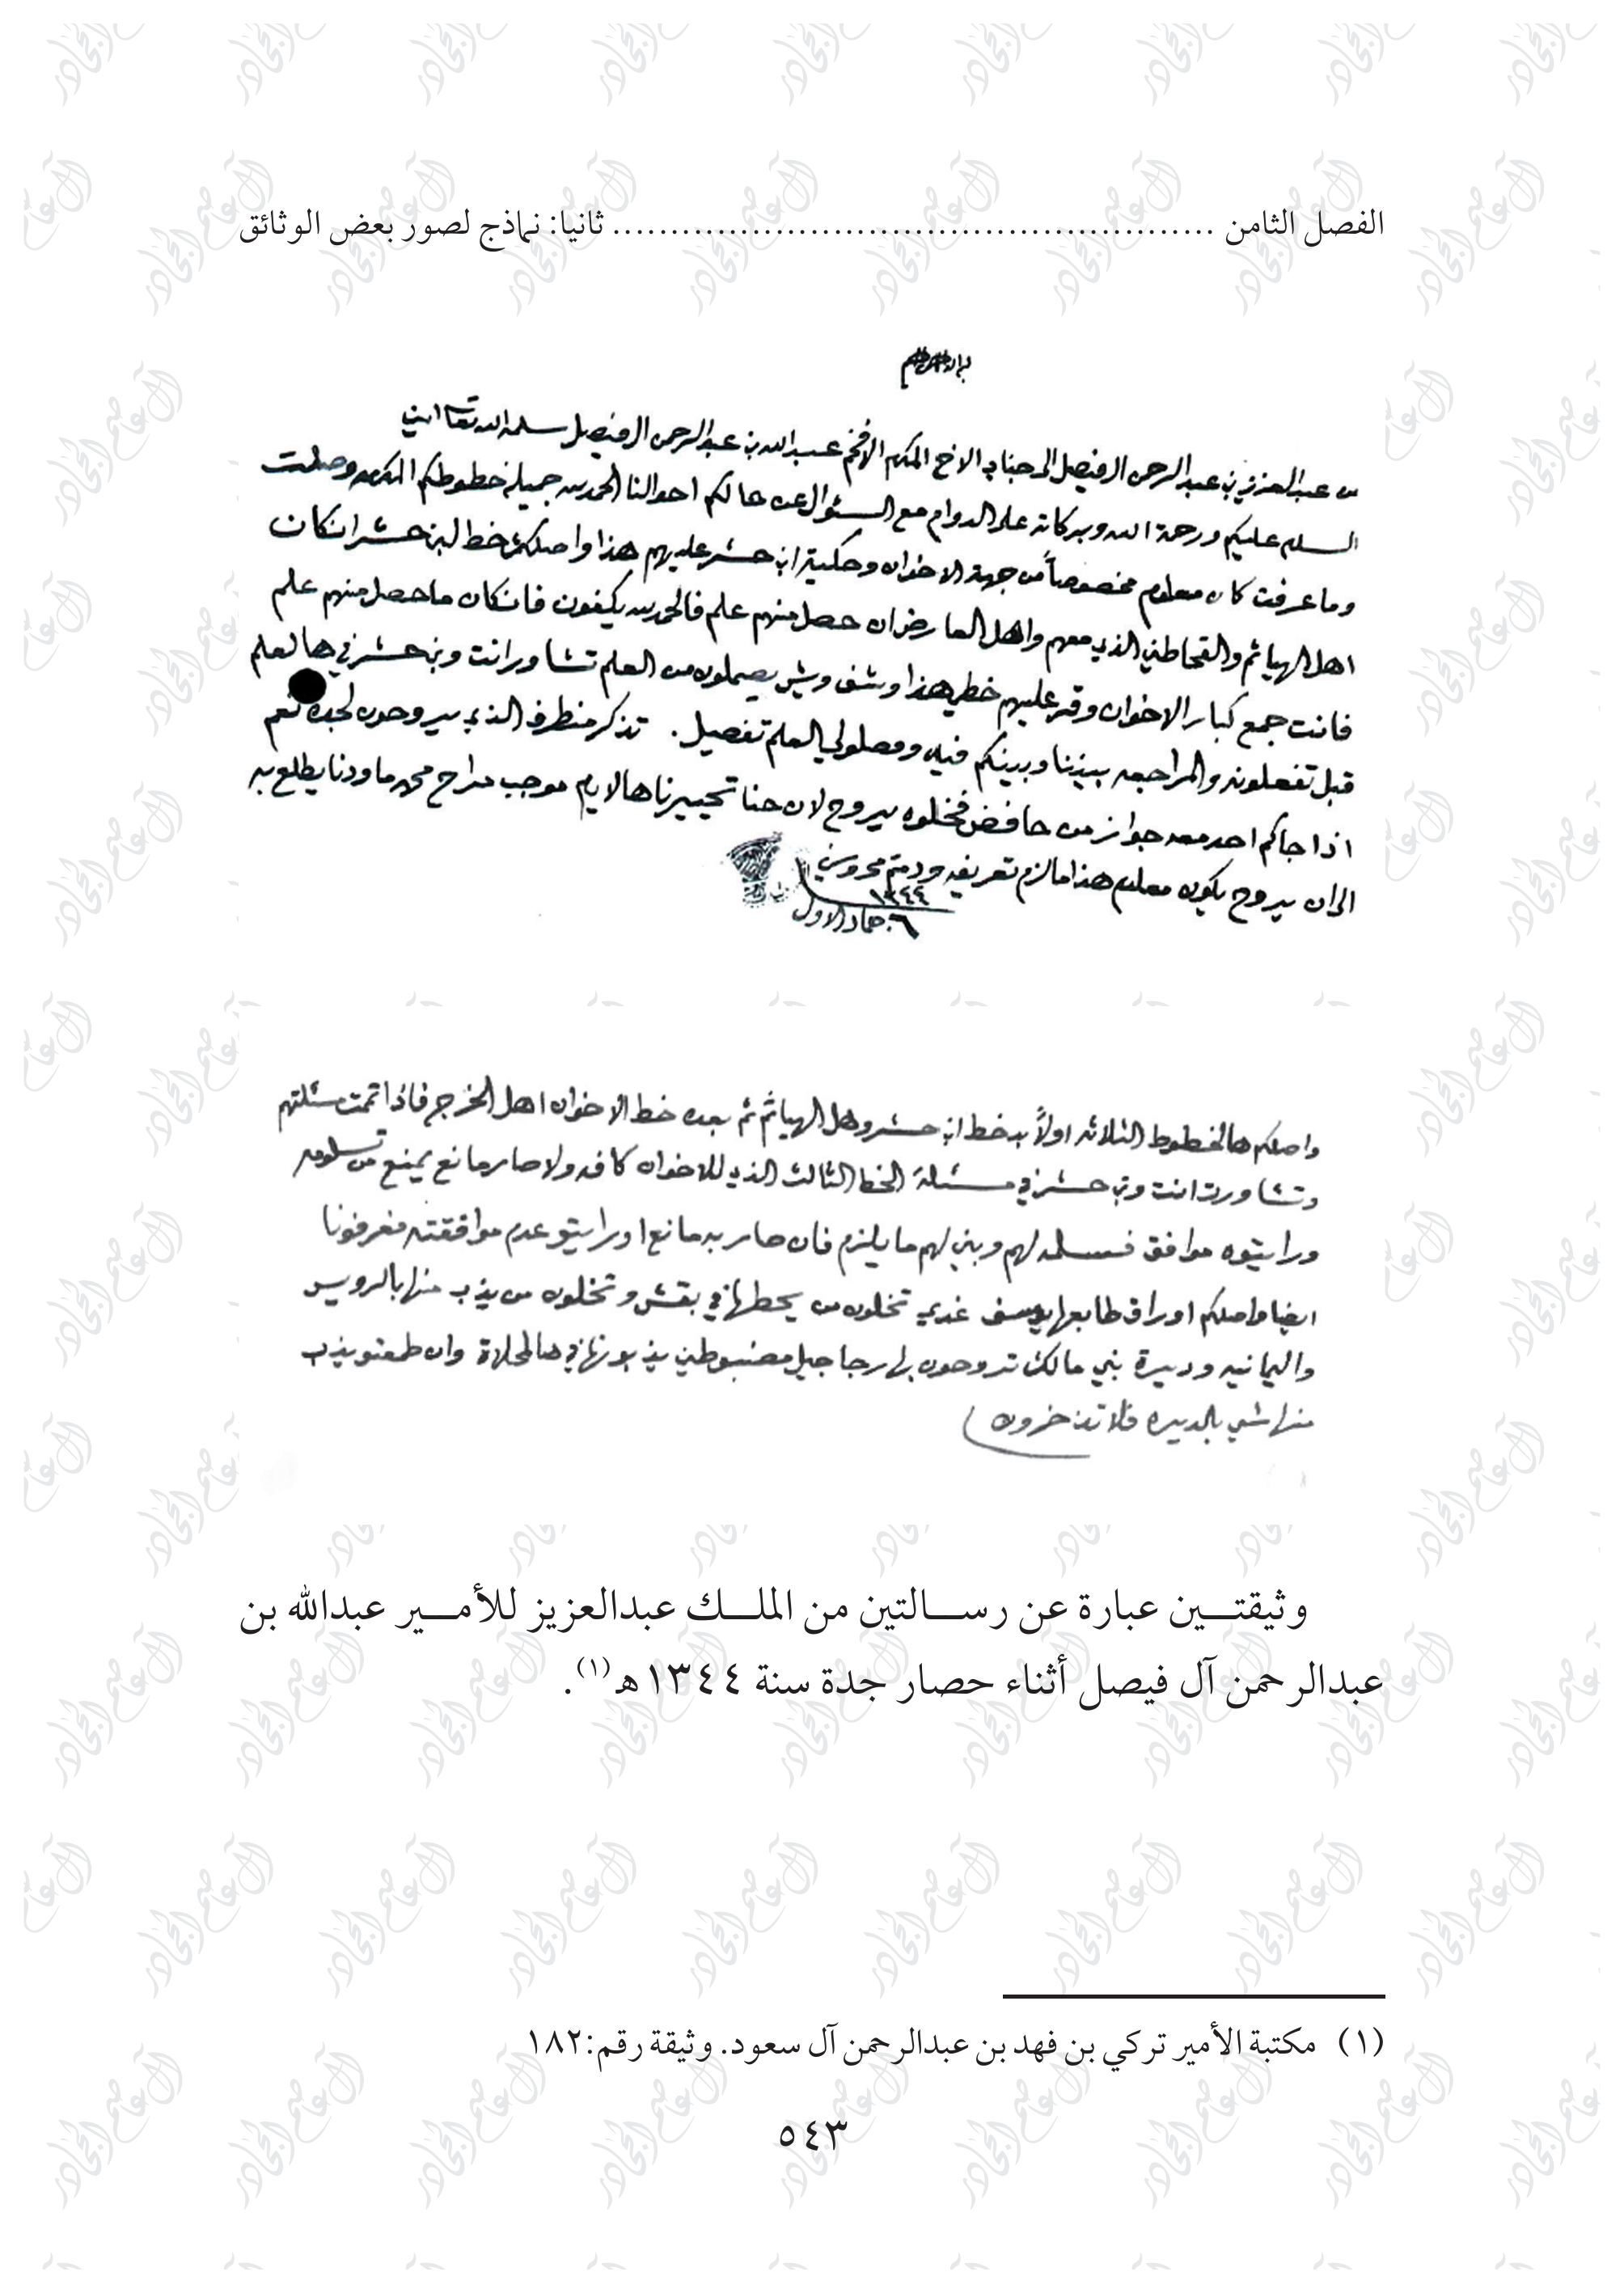 الفصل الثامن .................................................... ثانيا: نماذج لصور بعض الوثائق
من عبد العزيز بن عبد الرحمن الفيصل الى جناب الاخ المكرم الافخم عبد الله بن عبد الرحمن الفيصل سلمه الله تعالى امين
السلام عليكم ورحمة الله وبركاته على الدوام مع السئوال عن حالكم احوالنا الحمد لله جميله خطوطكم المكرمه وصلت
وما عرفت كان معلوم مخصوصاً من جهة الاخوان وحكية ابن حشر عليهم هذا واصلكم خط لبن حشر انكان
اهل الهياثم والقحاطين الذي معهم واهل العارض ان حصل منهم علم فالحمد لله يكفون فانكان ما حصل منهم علم
فانت جمع كبار الاخوان وقر عليهم خطي هذا وشف ويش يعملون من العلم تشاور انت وبن حشر في هالعلم
قبل تفعلونه والمراجعه بيننا وبينكم فيه وفصلولي العلم تفصيل. تذكر منطرف الذي يروحون لجده نعم
اذا جاكم احد معه جواز من حافض فخلوه يروح لان حنا هالايام موجب ما ودنا يطلع به
الى ان يروح يكون معلوم هذا مالزم تعريفه ودمتم محروسين
١٣٤٤
٦ جماد الاول
واصلكم هالخطوط الثلاثه اولاً بد خط ابن حشر وهل الهياثم ثم بعده خط الاخوان اهل الخرج فاذا تمت مسئلتهم
وتشاورت انت وبن حشر في مسئلة الخط الثالث الذي للاخوان كافه ولا صار مانع يمنع من تسلومه
ورايتوه موافق فسلمه لهم وبين لهم ما يلزم فان صار به مانع او رايتو عدم موافقته فعرفونا
ايضا واصلكم اوراق طابعها يوسف تخلون من يحطها في بقش وتخلون من يذب منها بالرويس
واليمانيه وديرة بني مالك تروحون لها رجاجيل مضبوطين يذبونها في هالمحلاة وان طمعتو بذب
منها شي بالديره فلا تذخرون
وثيقتين عبارة عن رسالتين من الملك عبدالعزيز للأمير عبدالله بن
عبدالرحمن آل فيصل أثناء حصار جدة سنة ١٣٤٤هـ(١).
(١) مكتبة الأمير تركي بن فهد بن عبدالرحمن آل سعود. وثيقة رقم:١٨٢
٥٤٣